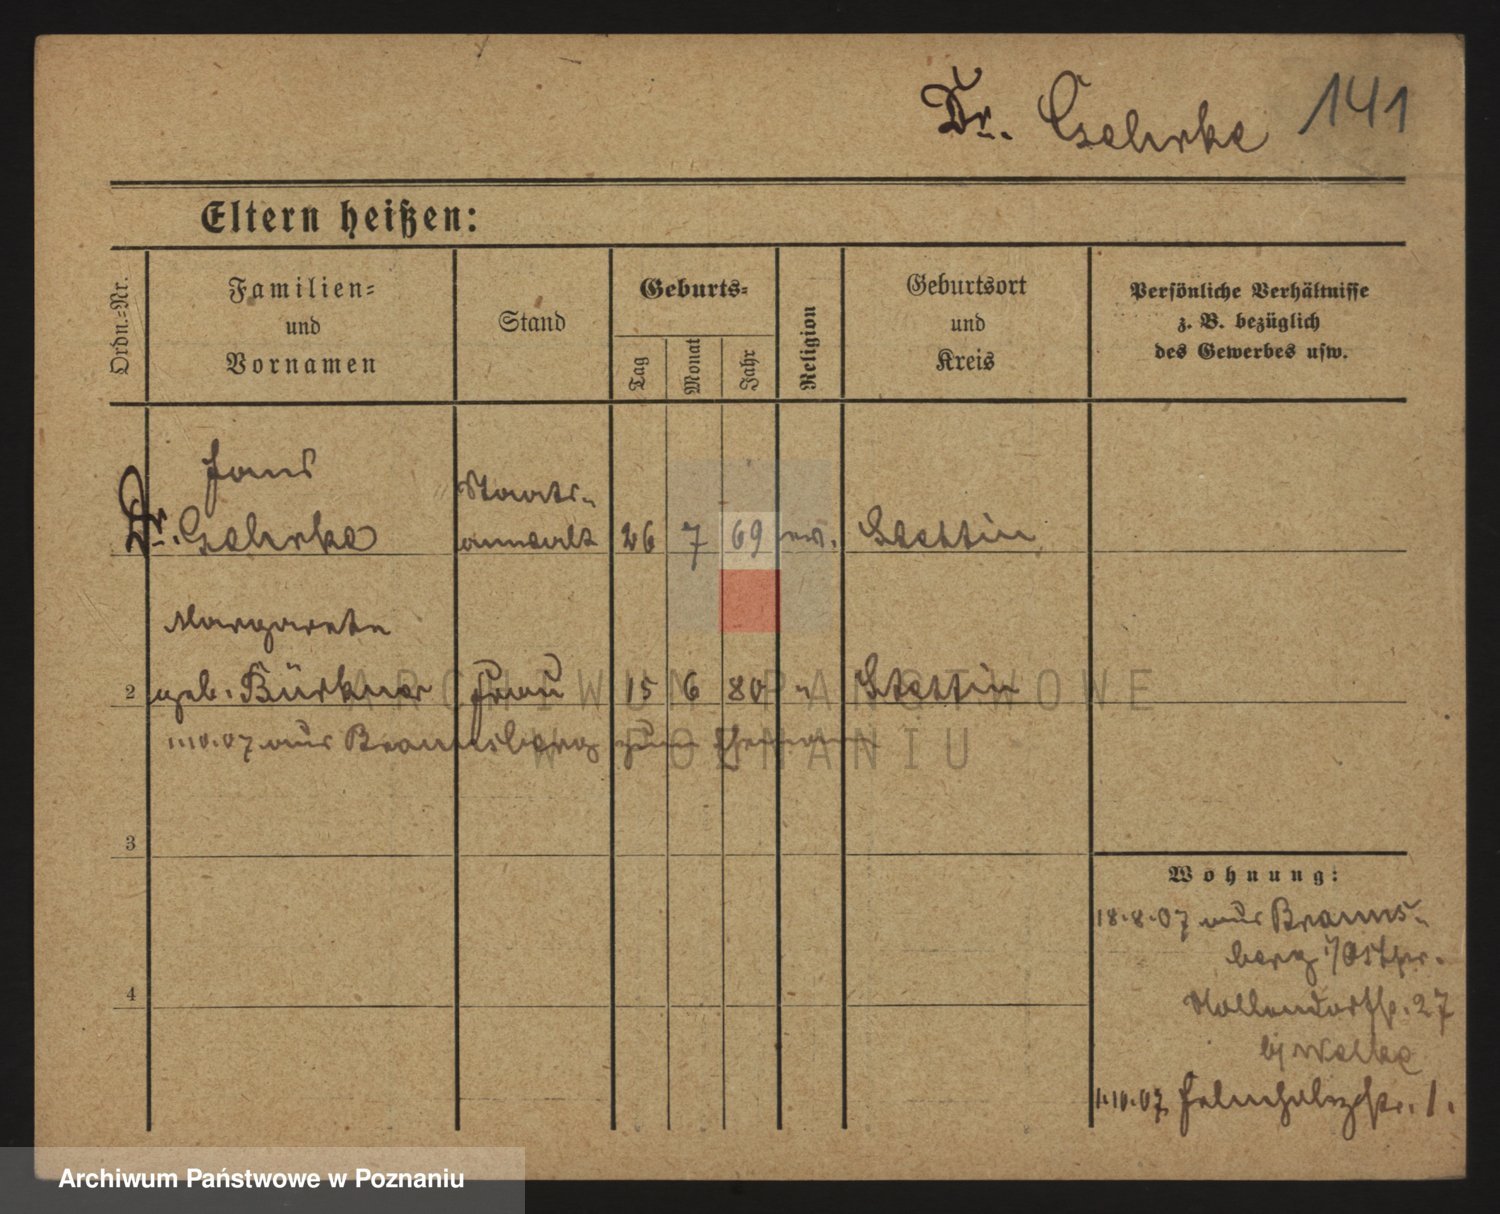 Dr. Gehrke 141
Eltern heißen:
Ordn.-Nr.
Familien-
und
Vornamen
Stand
Geburts-
Tag
Monat
Jahr
Religion
Geburtsort
und
Kreis
Persönliche Verhältnisse
z. B. bezüglich
des Gewerbes usw.
Hans
Dr. Gehrke
Staats-
anwalt
26 7 69 ev. Stettin
Margarete
2 geb. Bürkner Frau 15 6 80 " Stettin
1.10.07 aus Braunsberg zum Ehemann
3
4
Wohnung:
18.8.07 aus Brauns-
berg i/Ostpr.
Nollendorfstr. 27
b/
1.10.07 str. 1.
ARCHIWUM PAŃSTWOWE
W POZNANIU
Archiwum Państwowe w Poznaniu